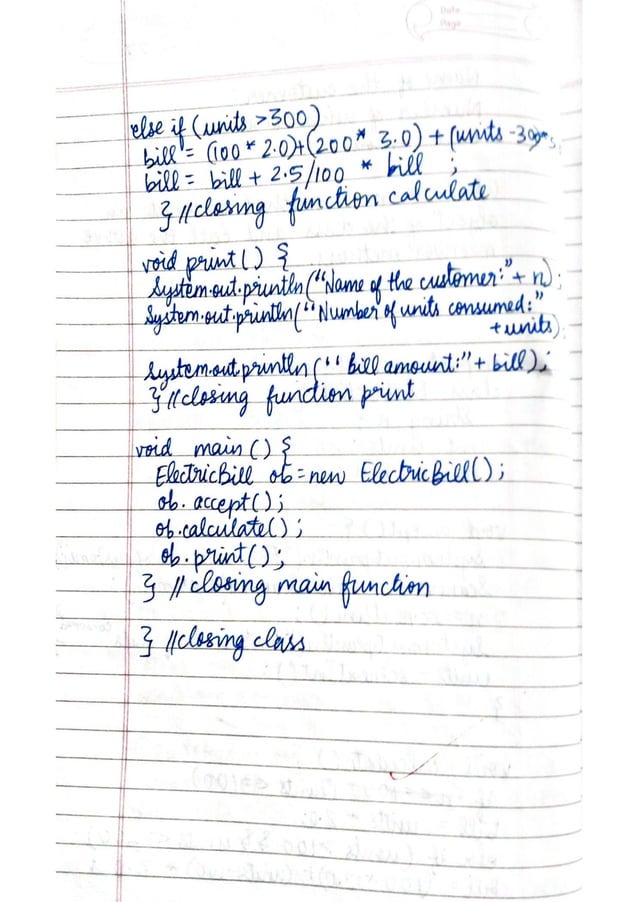 Date
Page
else if (units >300)
bill = (100 * 2.0)+(200* 3.0) + (units -300)*5
bill = bill + 2.5/100 * bill ;
} //closing function calculate
void print() {
System.out.println("Name of the customer:"+ n);
System.out.println("Number of units consumed:"
+units);
System.out.println("bill amount:"+ bill);
} //closing function print
void main() {
ElectricBill ob=new ElectricBill();
ob.accept();
ob.calculate();
ob.print();
} // closing main function
} //closing class